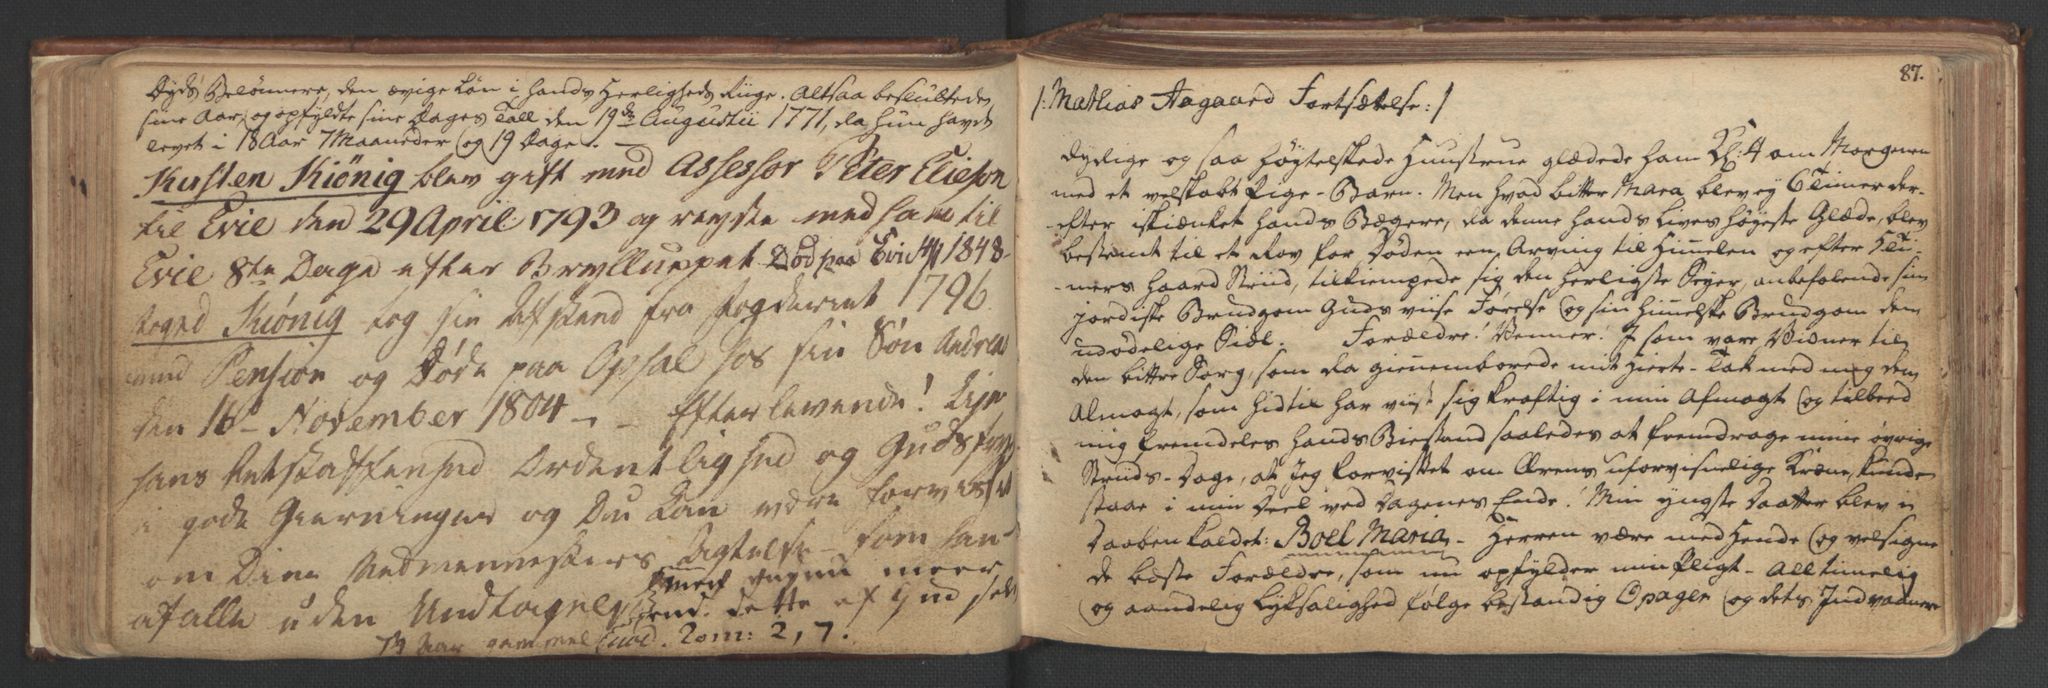 Dyds Belønnere, den ævige Løn i Hands Herligheds Riige. Altsaa besluttede
sine Aar, og opfyldte sine Dages Tall den 19de Augustii 1771, da hun havde
levet i 18 Aar 7 Maaneder og 19 Dage. —
Kirsten Kiönig blev gift med Assessor Peter Elieson
til Evie den 29 April 1793 og reyste med ham til
Evie 8te Dage efter Brylluppet. Död paa Evie 1848
Foged Kiönig tog sin Afskeed fra Fogderiet 1796
med Pension og Döde paa Opsal hos sin Sön Andrea
den 16de November 1804 — Efterlevende!
hans Retskaffenhed Ordentlighed og Gudsfrygt
i gode Gierninger og Du kan være forvisset
om Dine Medmenneskers Agtelse — som han
af alle uden Undtagelse
dette af Gud selv
74 Aar gammel Rom: 2, 7.
87.
/: Mathias Aagaard Fortsættelse :/
dydige og saa høytelskede Huustrue glædede ham Kl: 4 om Morgenen
med et velskabt Pige-Barn. Men hvad bitter Mara blev ey 6 Timer der-
-efter iskiænket hands Bægere, da denne hands Lives høyeste Glæde, blev
bestemt til et Rov for Døden een Arving til Himmelen og efter 5 Ti-
-mers haard Striid, tilkiempede sig den herligste Seyer, anbefalende sin
jordiske Brudgom Guds viise Førelse og sin himmelske Brudgom den
udødelige Siæl. Forældre! Venner! I som vare Vidner til
den bittre Sorg, som da giennemborede mit Hierte — Tak med mig den
Almagt, som hidtil har viist sig kraftig i min Afmagt og tilbeed
mig fremdeles hands Biestand saaledes at fremdrage mine øvrige
Striids-Dage, at Jeg forvisset om Ærens uforvisnelige Krone, kunde
staae i min Deel ved Dagenes Ende! Min yngste Daatter blev i
Daaben kaldet: Boel Maria — Herren være med Hende og velsigne
de beste Forældre, som nu opfylder min Pligt — All timelig
og aandelig Lyksalighed følge bestandig Opager og dets Indvaanere